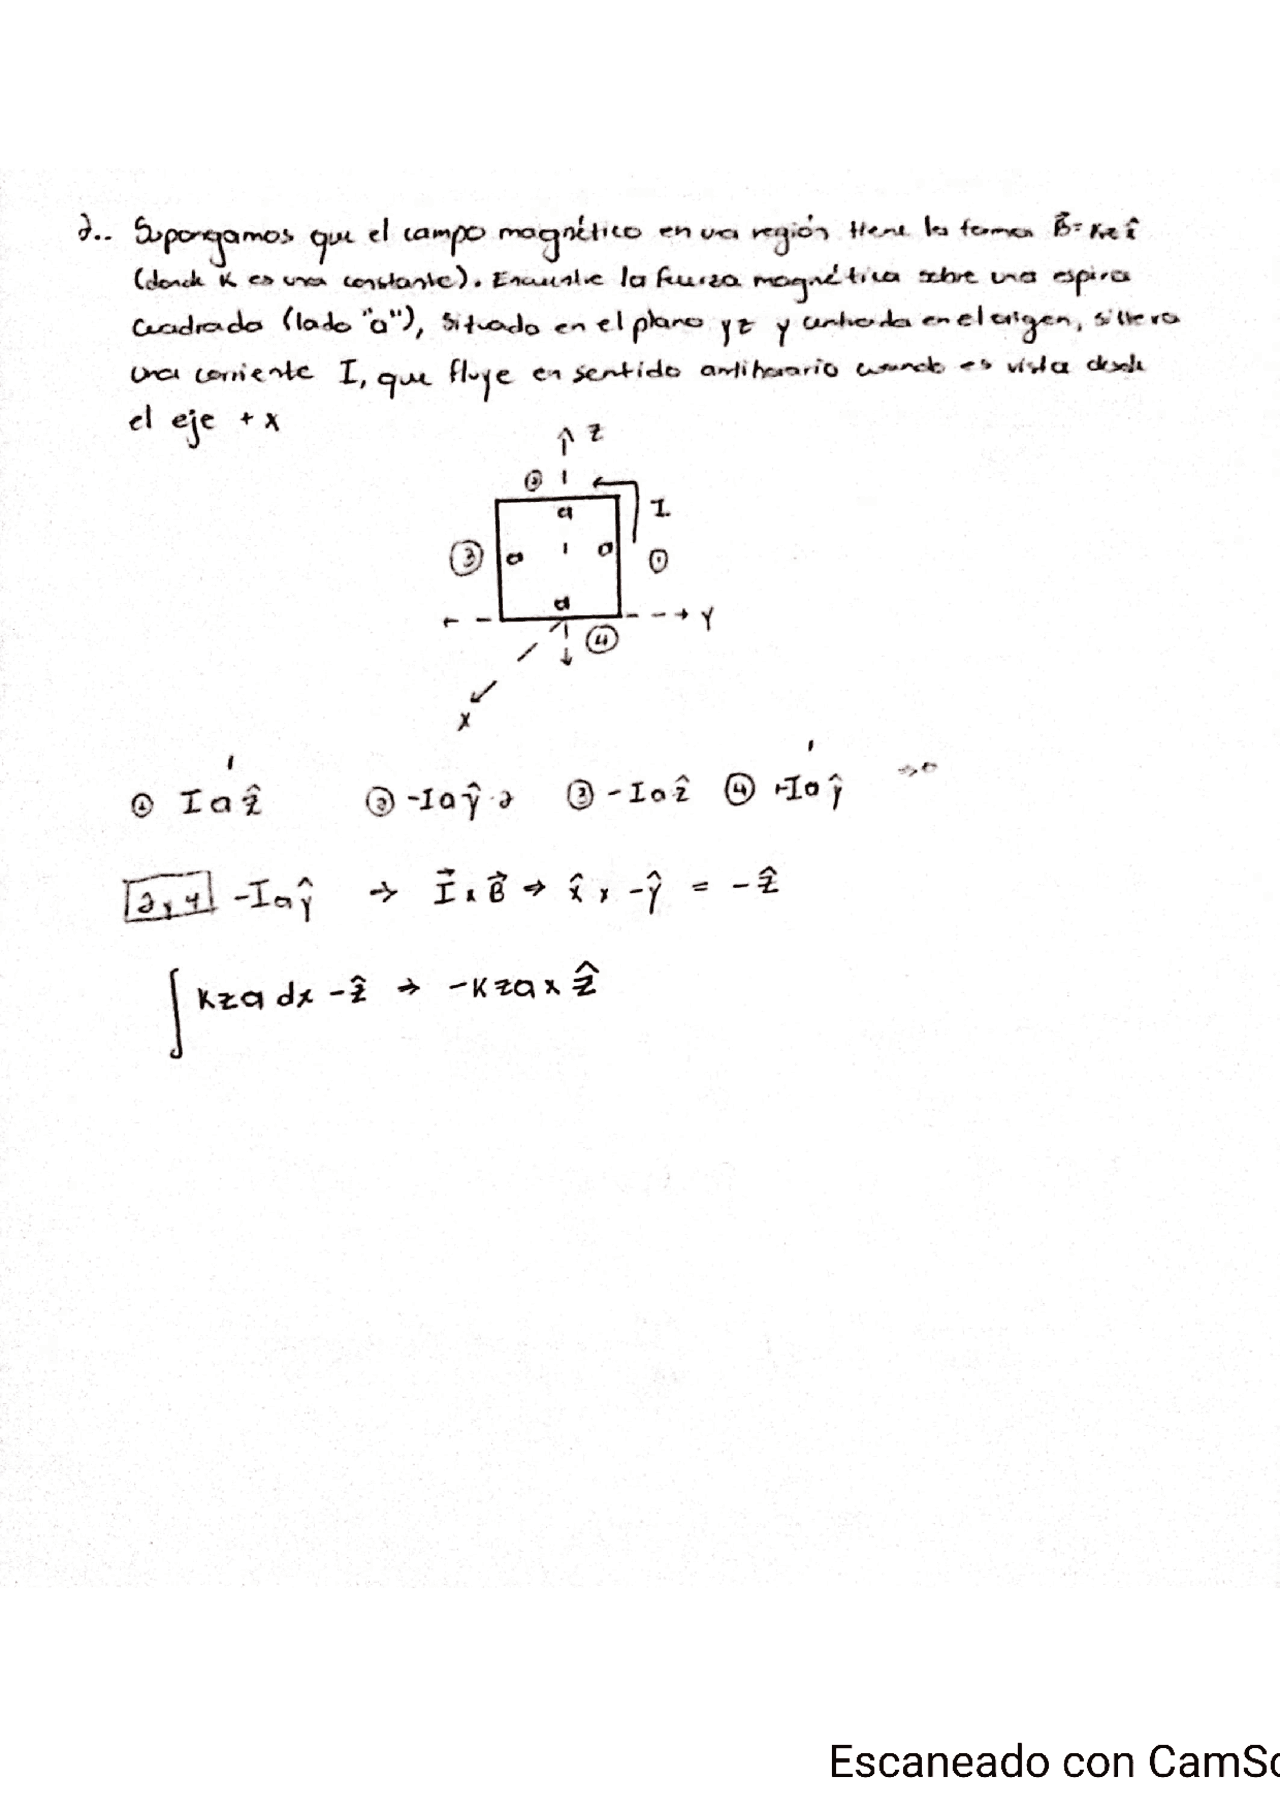 2.. Supongamos que el campo magnético en una región tiene la forma B⃗ = Kz î
(donde K es una constante). Encuentre la fuerza magnética sobre una espira
cuadrada (lado "a"), situado en el plano yz y centrada en el origen, si lleva
una corriente I, que fluye en sentido antihorario cuando es vista desde
el eje + x
Z
②
a
I
③ a a ①
a
Y
④
X
① I a ẑ ② -Iaŷ ③ -Iaẑ ④ Iaŷ
2 y 4 -Iaŷ → I⃗ x B⃗ → x̂ x -ŷ = -ẑ
∫ kza dx -ẑ → -kzax ẑ
Escaneado con CamSc